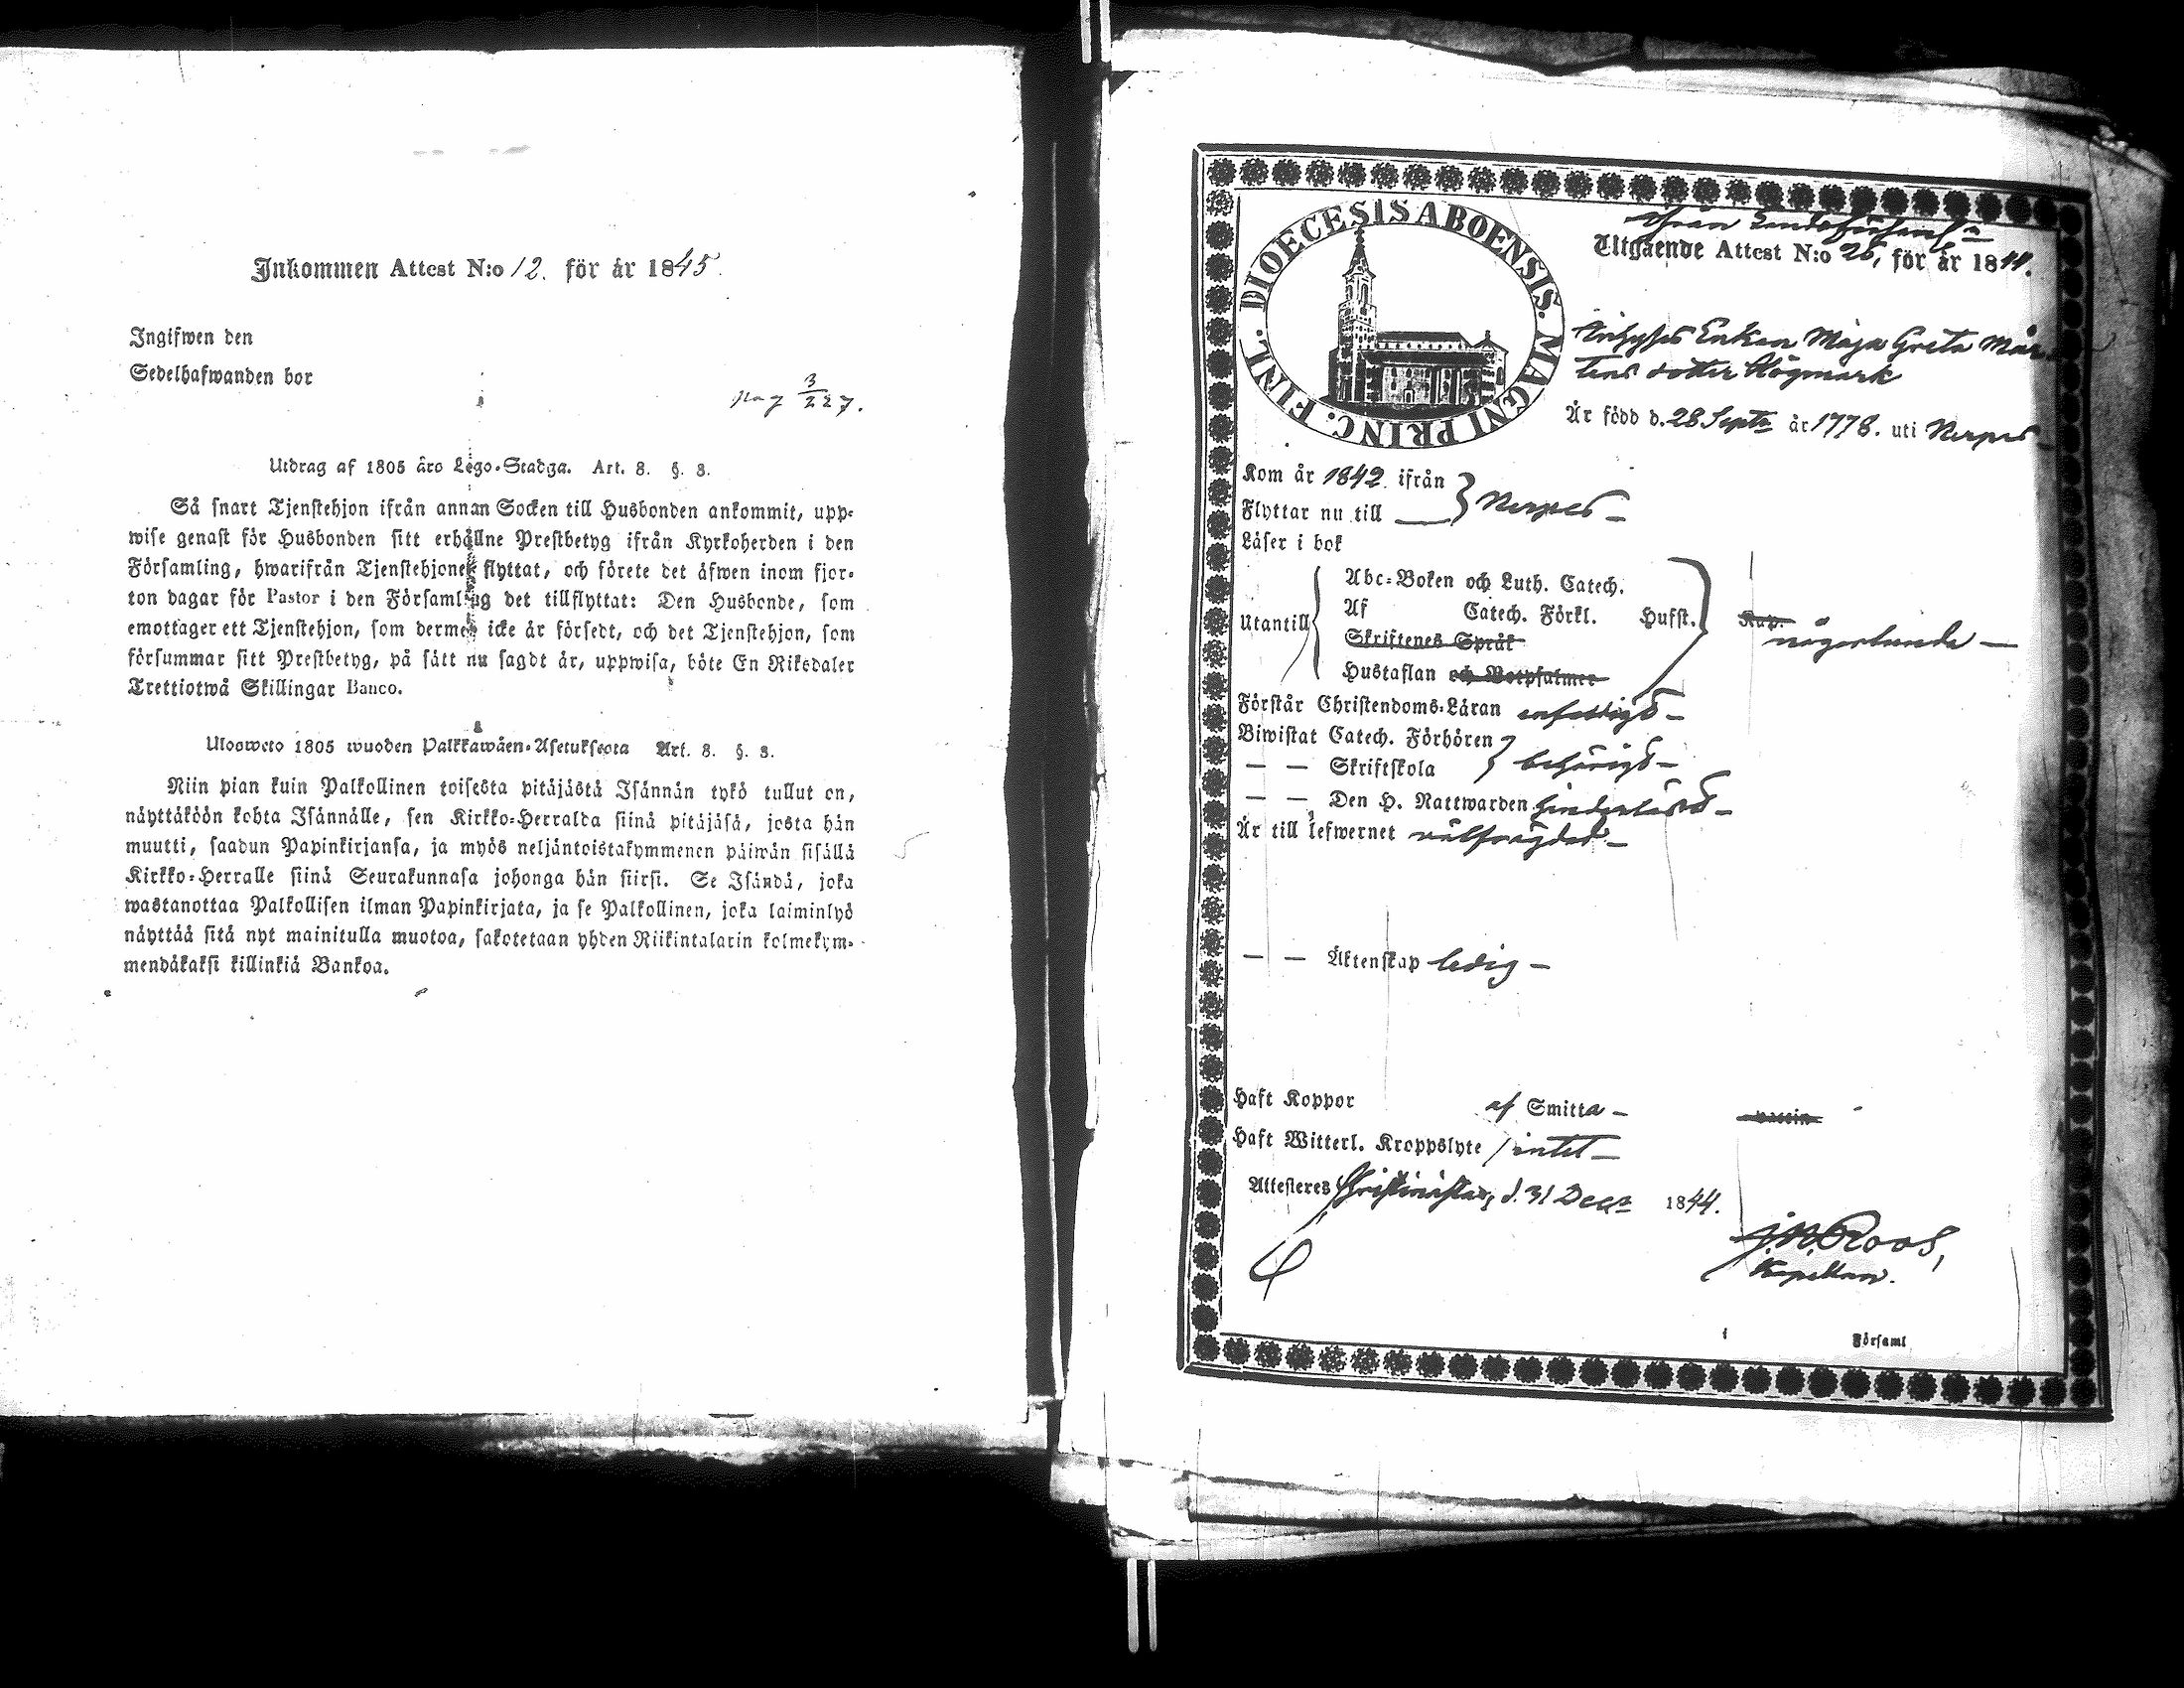 Inkommen Attest N:o 12. för år 1845.
Ingifwen den
Sedelhafwanden bor
pag 3/227.
Utdrag af 1805 års Lego-Stadga. Art. 8. §. 8.
Så snart Tjenstehjon ifrån annan Socken till Husbonden ankommit, upp-
wise genast för Husbonden sitt erhållne Prestbetyg ifrån Kyrkoherden i den
Församling, hwarifrån Tjenstehjonet flyttat, och förete det äfwen inom fjor-
ton dagar för Pastor i den Församling det tillflyttat: Den Husbonde, som
emottager ett Tjenstehjon, som dermed icke är försedt, och det Tjenstehjon, som
försummar sitt Prestbetyg, på sätt nu sagdt är, uppwisa, böte En Riksdaler
Trettiotwå Skillingar Banco.
Ulosweto 1805 wuoden Palkkawäen-Asetuksesta Art. 8. §. 8.
Niin pian kuin Palkollinen toisesta pitäjästä Isännän tykö tullut on,
näyttäköön kohta Isännälle, sen Kirkko-Herralda siinä pitäjäsä, josta hän
muutti, saadun Papinkirjansa, ja myös neljäntoistakymmenen päiwän sisällä
Kirkko-Herralle siinä Seurakunnasa johonga hän siirsi. Se Isändä, joka
wastanottaa Palkollisen ilman Papinkirjata, ja se Palkollinen, joka laiminlyö
näyttää sitä nyt mainitulla muotoa, sakotetaan yhden Riikintalarin kolmekym-
mendäkaksi killinkiä Bankoa.
DIOECESIS ABOENSIS. MAGNI PRINC. FINL.
ifrån Landsförsaml:n
Utgående Attest N:o 26, för år 1844.
Enkan Maja Greta Mår-
tens dotter Högmark
Är född d. 28 Sept:r år 1778. uti Nerpes
Kom år 1842 ifrån
Flyttar nu till Nerpes
Läser i bok
Utantill
Abc-Boken och Luth. Catech.
Af Catech. Förkl. Husst. Kap.
någorlunda
Skriftenes Språk
Hustaflan och Botpsalmer
Förstår Christendoms-Läran enfaldigt
Biwistat Catech. Förhören
— — Skriftskola behörigt
— — Den H. Nattwarden hinderlöst
Är till lefwernet wälfrägdad
— — Äktenskap ledig
Haft Koppor af Smitta vaccin
Haft Witterl. Kroppslyte intet
Attesteres Christinæstad, d. 31 Dec:r 1844.
J. N. Roos,
Kapellan.
i Församl